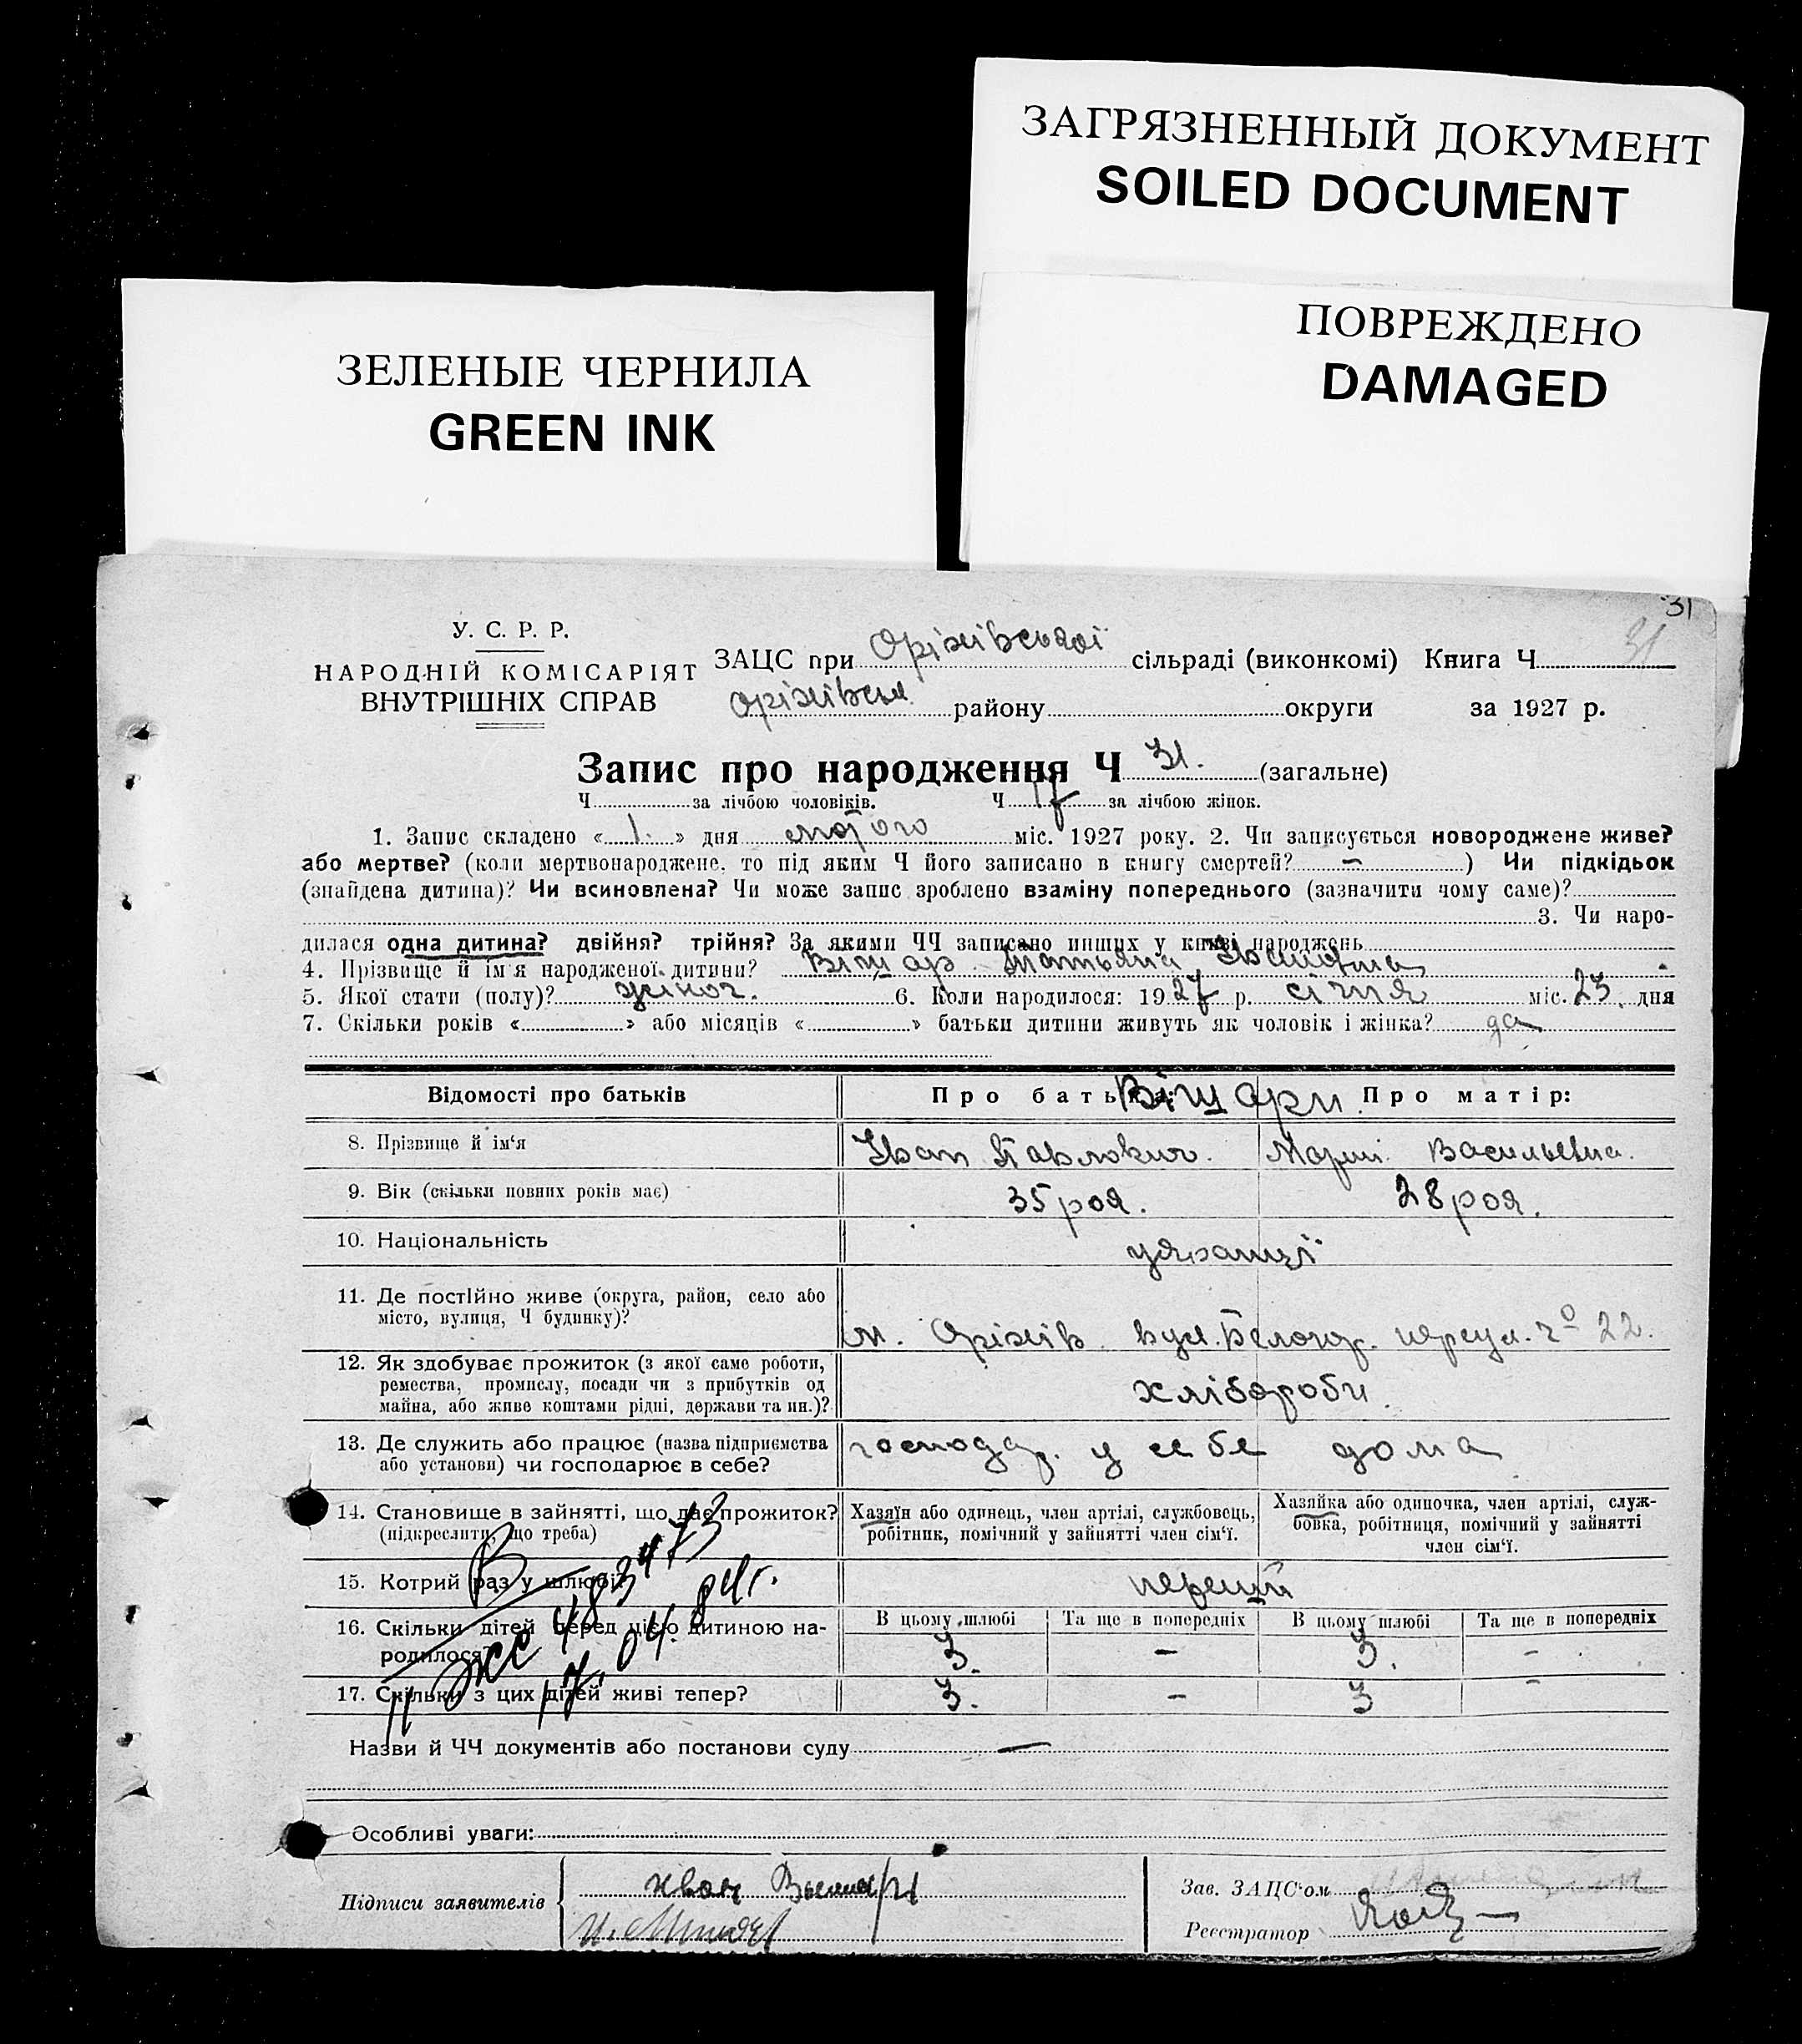 ЗАГРЯЗНЕННЫЙ ДОКУМЕНТ
SOILED DOCUMENT
ПОВРЕЖДЕНО
DAMAGED
ЗЕЛЕНЫЕ ЧЕРНИЛА
GREEN INK
31
У. С. Р. Р.
НАРОДНІЙ КОМІСАРІЯТ
ВНУТРІШНІХ СПРАВ
ЗАЦС при Оріхівської сільраді (виконкомі) Книга Ч. 31
Оріхівськ району округи за 1927 р.
Запис про народження Ч 31. (загальне)
Ч. за лічбою чоловіків. Ч. 17 за лічбою жінок.
1. Запис складено « 1. » дня лютого міс. 1927 року. 2. Чи записується новороджене живе?
або мертве? (коли мертвонароджене, то під яким Ч його записано в книгу смертей? — ) Чи підкідьок
(знайдена дитина)? Чи всиновлена? Чи може запис зроблено взаміну попереднього (зазначити чому саме)?
3. Чи наро-
дилася одна дитина? двійня? трійня? За якими ЧЧ записано инших у книзі народжень
4. Прізвище й ім'я народженої дитини? Віщар Татьяна Івановна
5. Якої стати (полу)? жіноч. 6. Коли народилося: 1927 р. січня міс. 23. дня
7. Скільки років « » або місяців « » батьки дитини живуть як чоловік і жінка? да
Відомості про батьків Про батька: Віщари Про матір:
8. Прізвище й ім'я Іван Павлович. Марія Васильевна.
9. Вік (скільки повних років має) 35 рок. 28 рок.
10. Національність українці
11. Де постійно живе (округа, район, село або
місто, вулиця, Ч будинку)?
м. Оріхів вул. № 22.
12. Як здобуває прожиток (з якої саме роботи,
ремества, промислу, посади чи з прибутків од
майна, або живе коштами рідні, держави та ин.)?
хлібороби
13. Де служить або працює (назва підприємства
або установи) чи господарює в себе?
господар. у себе дома
14. Становище в зайнятті, що дає прожиток?
(підкреслити, що треба)
Хазяїн або одинець, член артілі, службовець,
робітник, помічний у зайнятті член сім'ї.
Хазяйка або одиночка, член артілі, служ-
бовка, робітниця, помічний у зайнятті
член сім'ї.
15. Котрий раз у шлюбі? перший
16. Скільки дітей перед цією дитиною на-
родилося?
В цьому шлюбі Та ще в попередніх В цьому шлюбі Та ще в попередніх
3. — 3. —
17. Скільки з цих дітей живі тепер? 3. — 3 —
II ЖС 483473
17.04.84г.
Назви й ЧЧ документів або постанови суду —
Особливі уваги:
Підписи заявителів
Іван
Зав. ЗАЦС'ом
Реєстратор